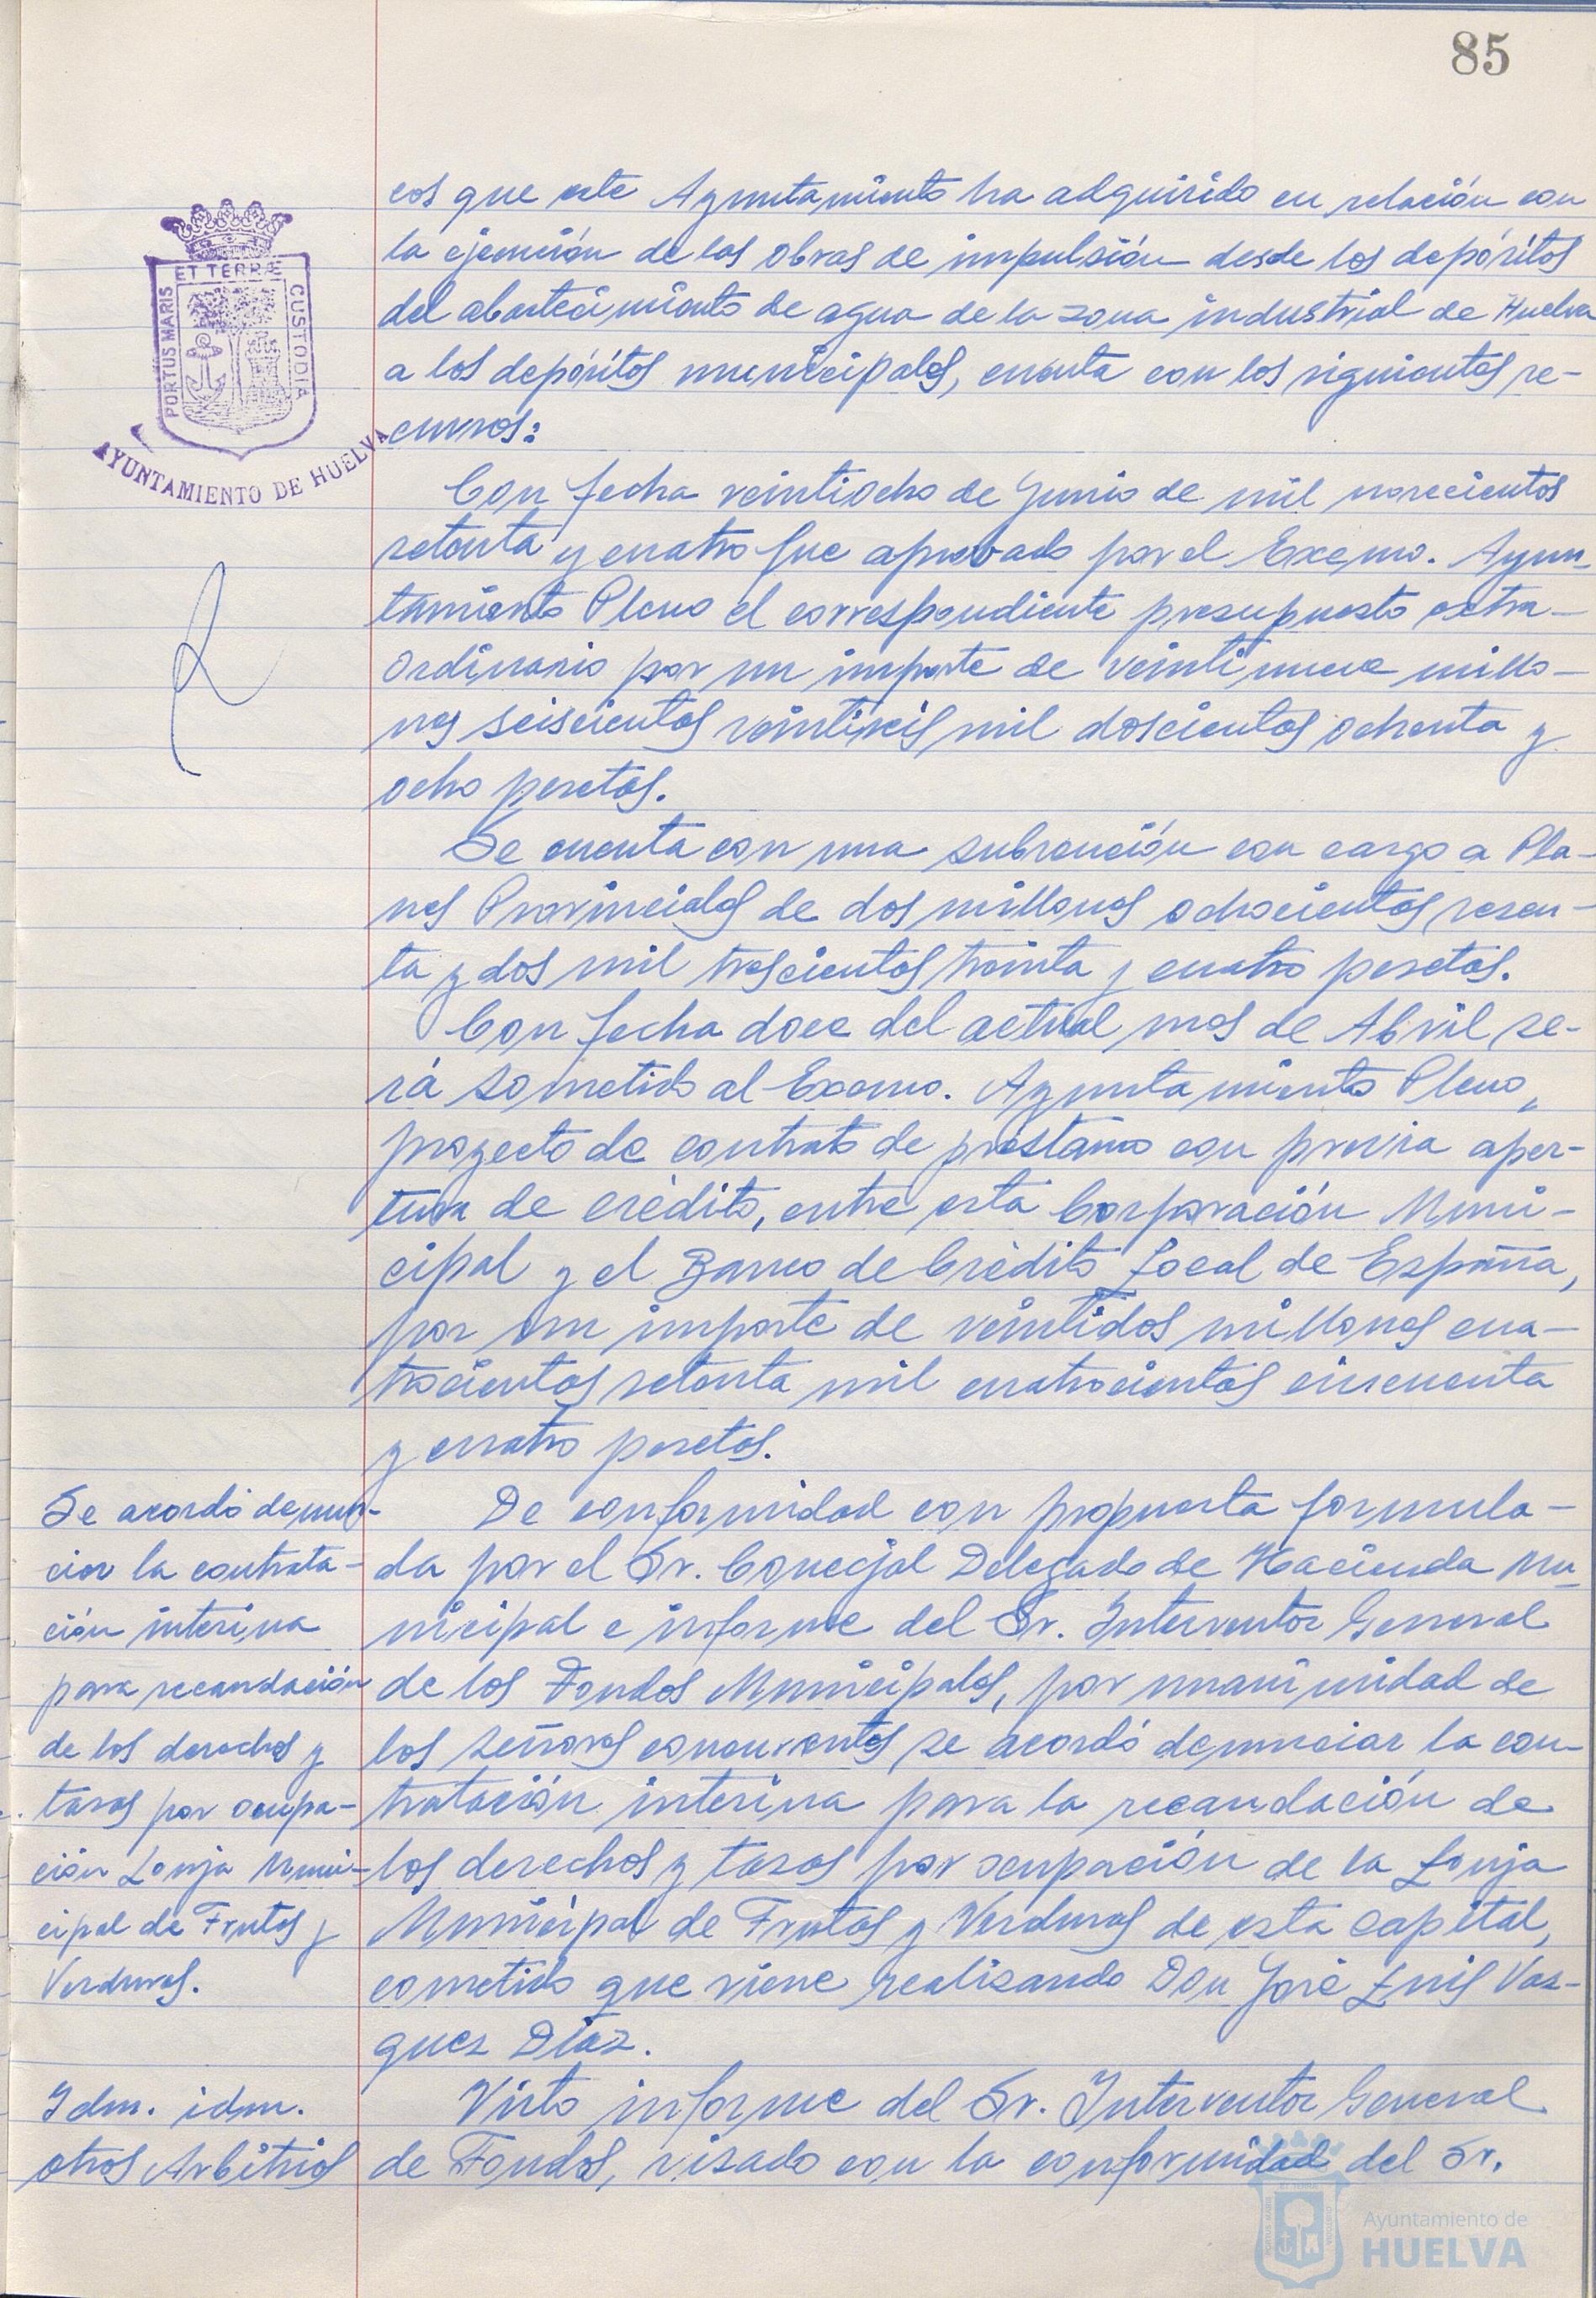 85
ET TERRÆ
PORTUS MARIS
CUSTODIA
AYUNTAMIENTO DE HUELVA
cos que este Ayuntamiento ha adquirido en relación con
la ejecución de las obras de impulsión desde los depósitos
del abastecimiento de agua de la zona industrial de Huelva
a los depósitos municipales, cuenta con los siguientes re-
cursos:
Con fecha veintiocho de Junio de mil novecientos
setenta y cuatro fue aprobado por el Excmo. Ayun-
tamiento Pleno el correspondiente presupuesto extra-
ordinario por un importe de veintinueve millo-
nes seiscientos veintiseis mil doscientos ochenta y
ocho pesetas.
Se cuenta con una subvención con cargo a Pla-
nes Provinciales de dos millones ochocientos sesen-
ta y dos mil trescientos treinta y cuatro pesetas.
Con fecha doce del actual mes de Abril se-
rá sometido al Excmo. Ayuntamiento Pleno,
proyecto de contrato de préstamo con previa aper-
tura de crédito, entre esta Corporación Muni-
cipal y el Banco de Crédito Local de España,
por un importe de veintidos millones cua-
trocientos setenta mil cuatrocientos cincuenta
y cuatro pesetas.
Se acordó denun-
ciar la contrata-
ción interina
para recaudación
de los derechos y
tasas por ocupa-
ción Lonja Muni-
cipal de Frutas y
Verduras.
De conformidad con propuesta formula-
da por el Sr. Concejal Delegado de Hacienda Mu-
nicipal e informe del Sr. Interventor General
de los Fondos Municipales, por unanimidad de
los señores concurrentes se acordó denunciar la con-
tratación interina para la recaudación de
los derechos y tasas por ocupación de la Lonja
Municipal de Frutas y Verduras de esta capital,
cometido que viene realizando Don José Luis Vaz-
quez Díaz.
Idm. idm.
otros Arbitrios
Visto informe del Sr. Interventor General
de Fondos, visado con la conformidad del Sr.
Ayuntamiento de
HUELVA